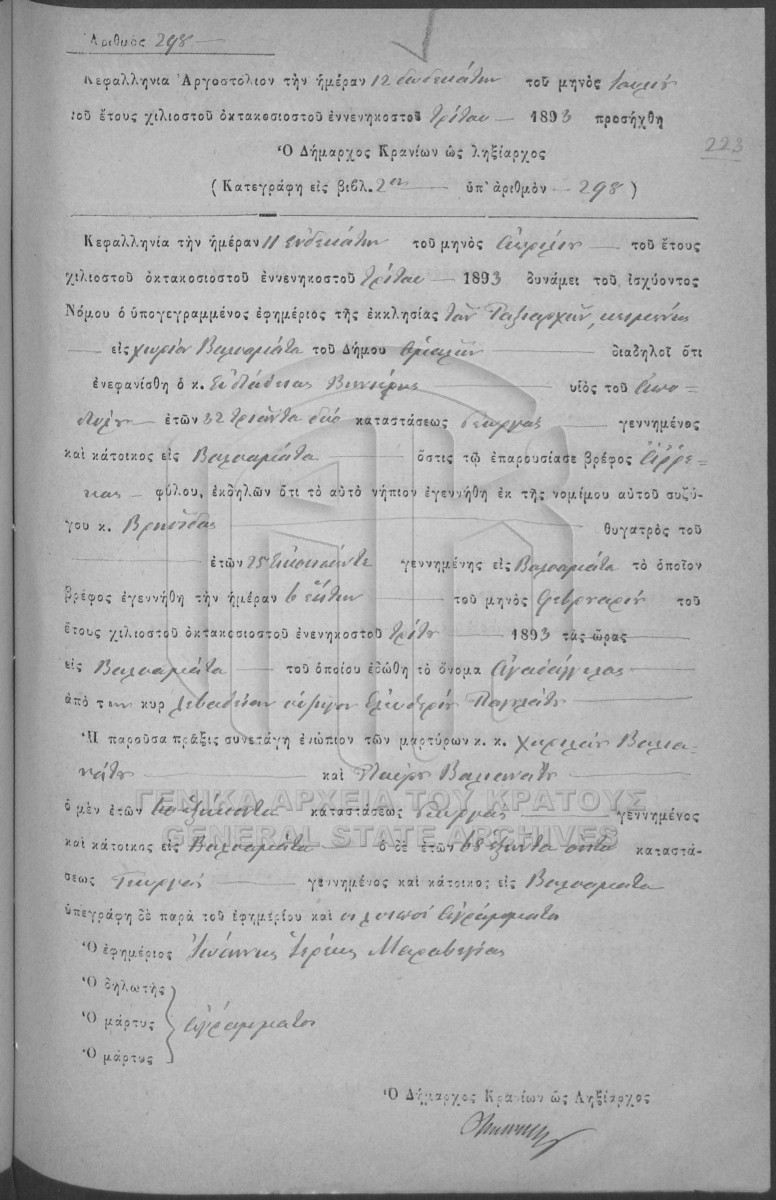 Ἀριθμὸς 298
Κεφαλληνία Ἀργοστόλιον τὴν ἡμέραν 12 δωδεκάτην τοῦ μηνὸς
τοῦ ἔτους χιλιοστοῦ ὀκτακοσιοστοῦ ἐννενηκοστοῦ τρίτου 1893 προσήχθη
223
Ὁ Δήμαρχος Κρανίων ὡς ληξίαρχος
(Κατεγράφη εἰς βιβλ. 2ον ὑπ' ἀριθμὸν 298)
Κεφαλληνία τὴν ἡμέραν 11 ἑνδεκάτην τοῦ μηνὸς Ἀπριλίου τοῦ ἔτους
χιλιοστοῦ ὀκτακοσιοστοῦ ἐννενηκοστοῦ τρίτου 1893 δυνάμει τοῦ ἰσχύοντος
Νόμου ὁ ὑπογεγραμμένος ἐφημέριος τῆς ἐκκλησίας τῶν Ταξιαρχῶν, κειμένης
εἰς χωρίον Βαλσαμάτα τοῦ Δήμου Ὁμαλῶν διαδηλοῖ ὅτι
ἐνεφανίσθη ὁ κ. υἱὸς τοῦ
ἐτῶν 32 τριάντα δύο καταστάσεως γεωργὸς γεννημένος
καὶ κάτοικος εἰς Βαλσαμάτα ὅστις τῷ ἐπαρουσίασε βρέφος ἀρρε-
νος φύλου, ἐκδηλῶν ὅτι τὸ αὐτὸ νήπιον ἐγεννήθη ἐκ τῆς νομίμου αὐτοῦ συζύ-
γου κ. θυγατρὸς τοῦ
ἐτῶν 25 εἰκοσιπέντε γεννημένης εἰς Βαλσαμάτα τὸ ὁποῖον
βρέφος ἐγεννήθη τὴν ἡμέραν 6 ἕκτην τοῦ μηνὸς Φεβρουαρίου τοῦ
ἔτους χιλιοστοῦ ὀκτακοσιοστοῦ ἐνενηκοστοῦ τρίτου 1893 τὰς ὥρας
εἰς Βαλσαμάτα τοῦ ὁποίου ἐδώθη τὸ ὄνομα Ἀγαθάγγελος
ἀπὸ τὴν κυρ σύζυγον Ἐλευθερίου
Ἡ παροῦσα πρᾶξις συνετάγη ἐνώπιον τῶν μαρτύρων κ. κ. Χαριλάου Βαλια-
νάτου καὶ Σπύρου Βαλιανάτου
ὁ μὲν ἐτῶν 60 ἑξήκοντα καταστάσεως γεωργὸς γεννημένος
καὶ κάτοικος εἰς Βαλσαμάτα ὁ δὲ ἐτῶν 68 ἑξήντα ὀκτὼ καταστά-
σεως Γεωργὸς γεννημένος καὶ κάτοικος εἰς Βαλσαμάτα
ὑπεγράφη δὲ παρὰ τοῦ ἐφημερίου καὶ οἱ λοιποί ἀγράμματοι
Ὁ ἐφημέριος Ἰωάννης Ἱερεὺς Μαραβέγιας
Ὁ δηλωτὴς
Ὁ μάρτυς ἀγράμματοι
Ὁ μάρτυς
Ὁ Δήμαρχος Κρανίων ὡς Ληξίαρχος
ΓΕΝΙΚΑ ΑΡΧΕΙΑ ΤΟΥ ΚΡΑΤΟΥΣ
GENERAL STATE ARCHIVES